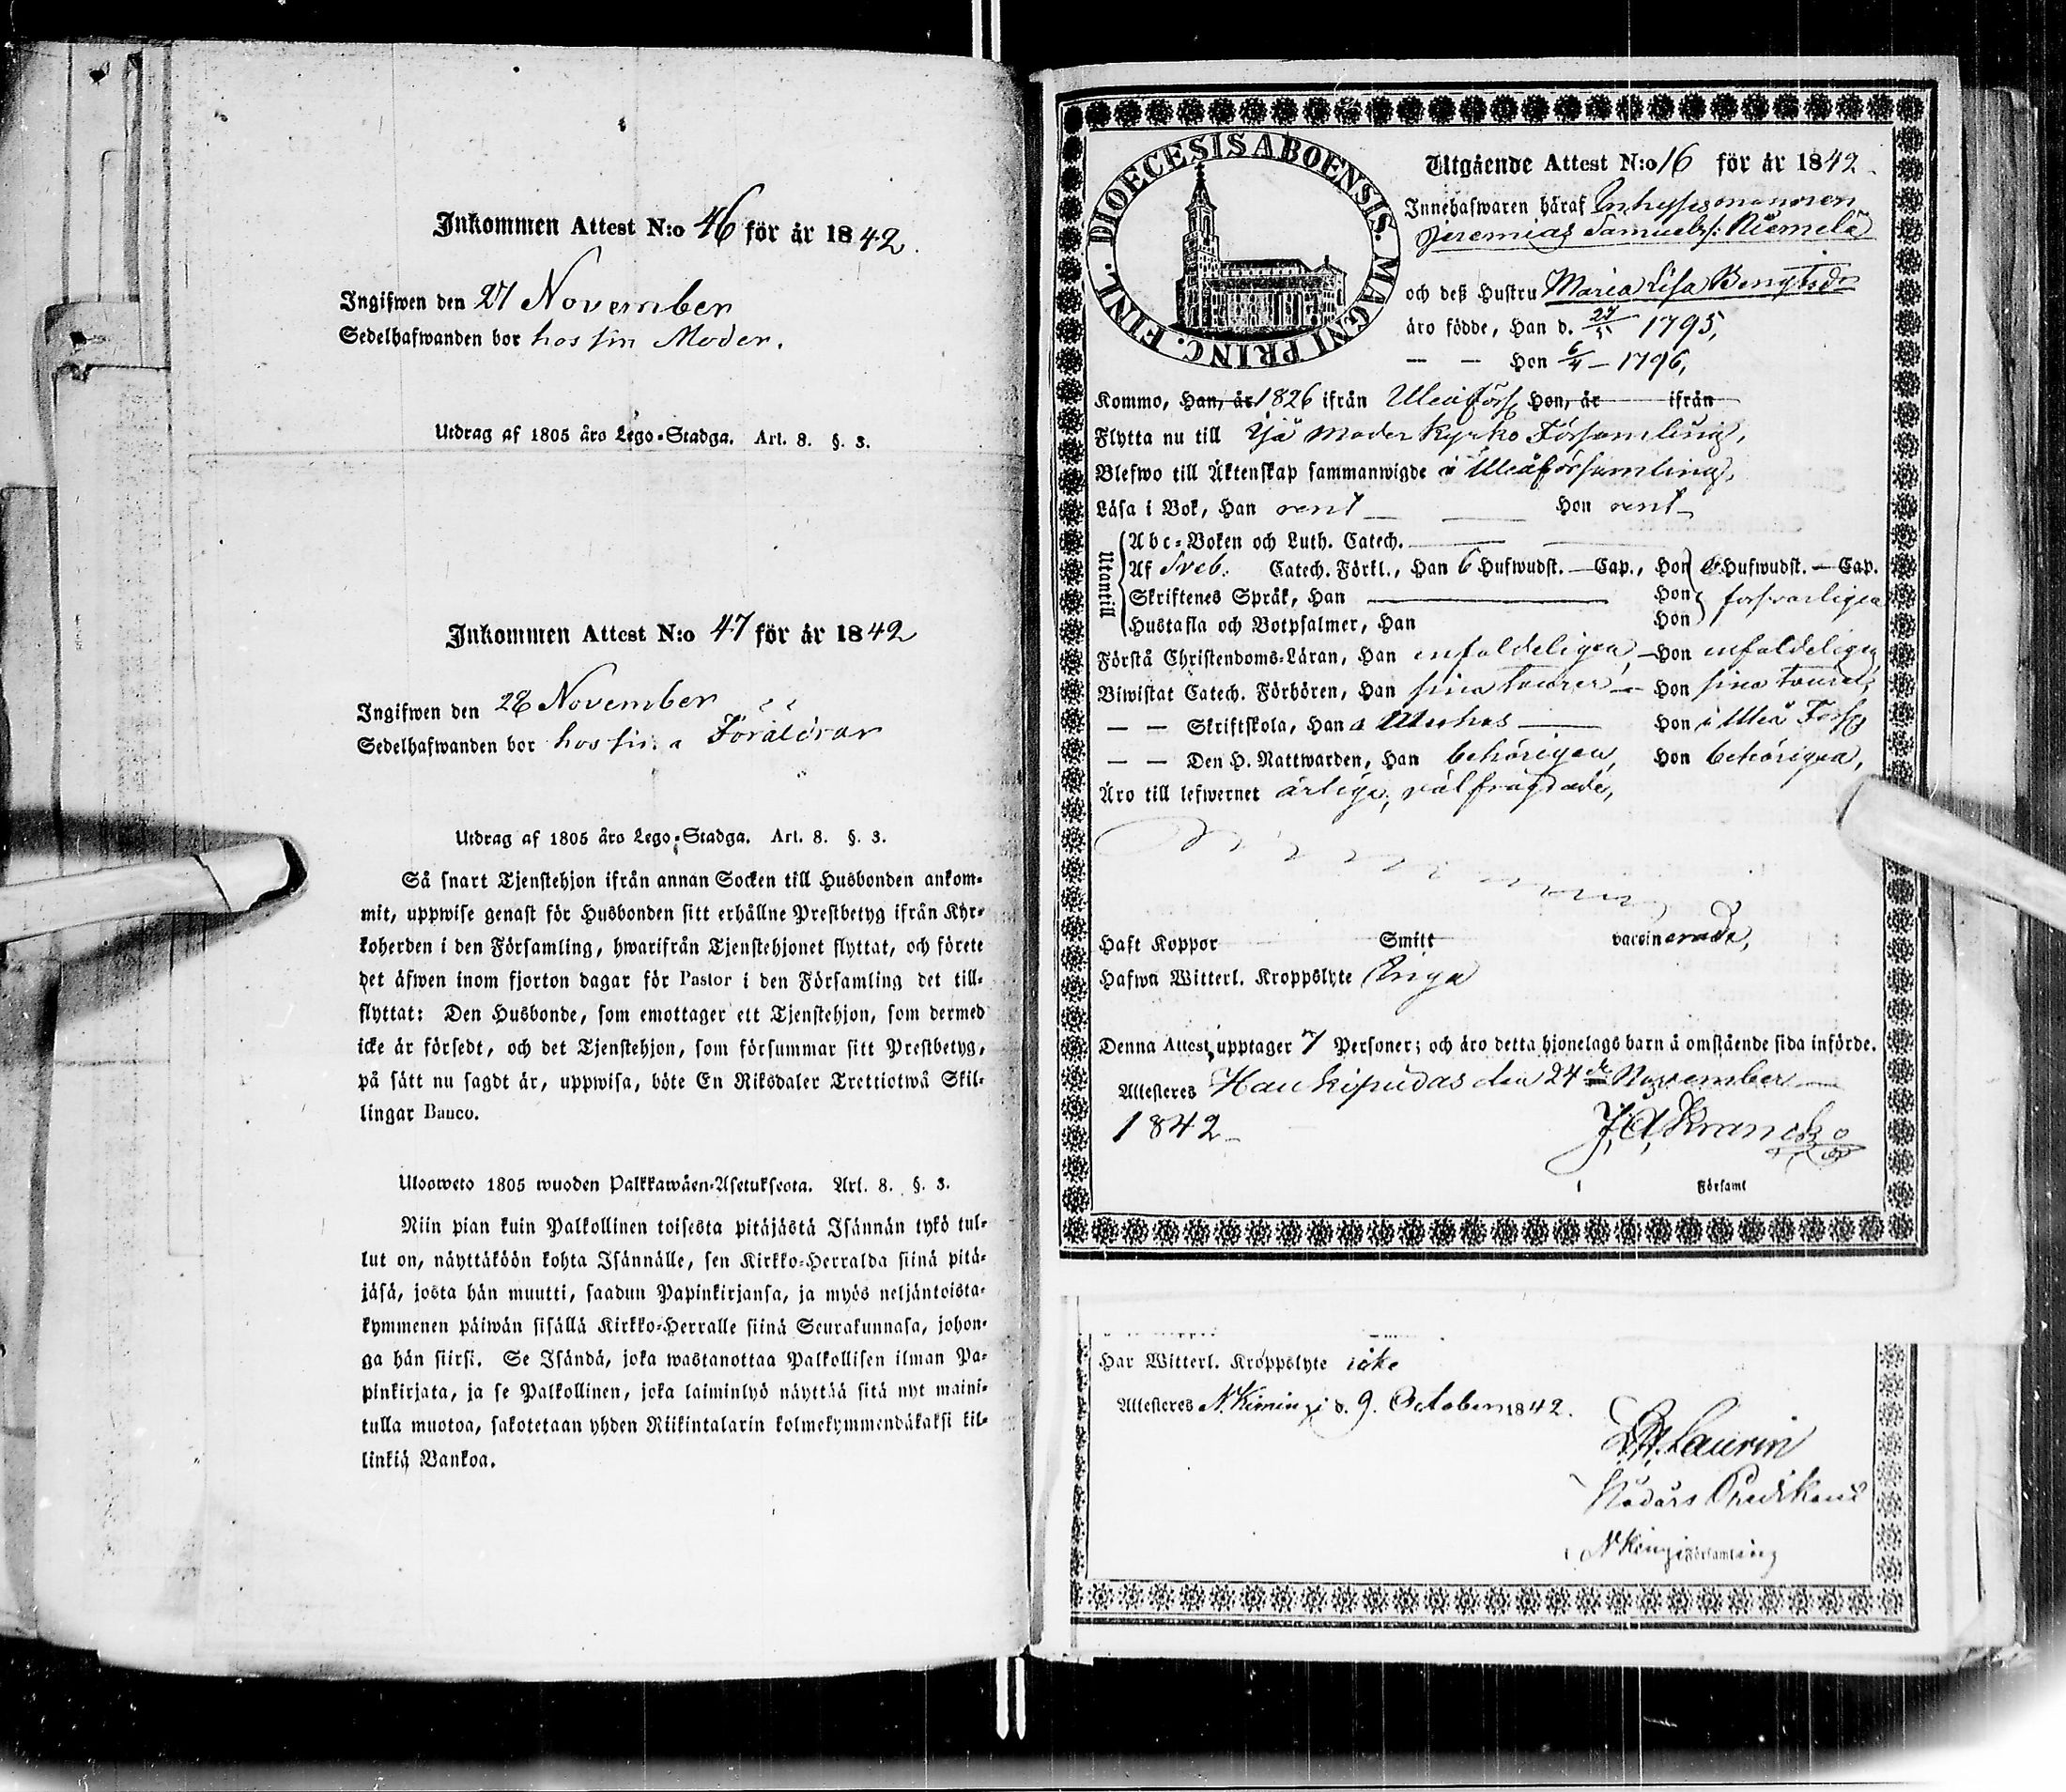 Inkommen Attest N:o 46 för år 1842.
Ingifwen den 27 November
Sedelhafwanden bor hos sin Moder.
Utdrag af 1805 års Lego-Stadga. Art. 8. §. 3.
Inkommen Attest N:o 47 för år 1842
Ingifwen den 28 November
Sedelhafwanden bor hos sina Föräldrar
Utdrag af 1805 års Lego-Stadga. Art. 8. §. 3.
Så snart Tjenstehjon ifrån annan Socken till Husbonden ankom-
mit, uppwise genast för Husbonden sitt erhållne Prestbetyg ifrån Kyr-
koherden i den Församling, hwarifrån Tjenstehjonet flyttat, och förete
det äfwen inom fjorton dagar för Pastor i den Församling det till-
flyttat: Den Husbonde, som emottager ett Tjenstehjon, som dermed
icke är försedt, och det Tjenstehjon, som försummar sitt Prestbetyg,
på sätt nu sagdt är, uppwisa, böte En Riksdaler Trettiotwå Skil-
lingar Banco.
Uloswето 1805 wuoden Palkkawäen-Asetuksesta. Art. 8. §. 3.
Niin pian kuin Palkollinen toisesta pitäjästä Isännän tykö tul-
lut on, näyttäköön kohta Isännälle, sen Kirkko-Herralda siinä pitä-
jäsä, josta hän muutti, saadun Papinkirjansa, ja myös neljäntoista-
kymmenen päiwän sisällä Kirkko-Herralle siinä Seurakunnasa, johon-
ga hän siirsi. Se Isändä, joka wastanottaa Palkollisen ilman Pa-
pinkirjata, ja se Palkollinen, joka laiminlyö näyttää sitä nyt maini-
tulla muotoa, sakotetaan yhden Riikintalarin kolmekymmendäkaksi kil-
linkiä Bankoa.
DIOECESIS ABOENSIS. MAGNI PRINC. FINL.
Utgående Attest N:o 16 för år 1842.
Innehafwaren häraf Inhyses mannen
Jeremias Samuels: Niemelä
och deß Hustru Maria Lisa Bengtsdr
äro födde, Han d. 1795,
— — Hon 6/4 — 1796,
Kommo, Han, år 1826 ifrån Uleå Förs Hon, år ifrån
Flytta nu till Ijå Moder Kyrko Församling,
Blefwo till Äktenskap sammanwigde i Uleå församling,
Läsa i Bok, Han rent — Hon rent
Utantill
Abc-Boken och Luth. Catech.
Af Sveb. Catech. Förkl., Han 6 Hufwudst. — Cap., Hon 6 Hufwudst. — Cap.
Skriftenes Språk, Han — Hon försvarligen
Hustafla och Botpsalmer, Han Hon
Förstå Christendoms-Läran, Han enfaldeligen, — Hon enfaldeligen
Biwistat Catech. Förhören, Han sina tourer — Hon sina tourer,
— — Skriftskola, Han i — Hon i Uleå Förs
— — Den H. Nattwarden, Han behörigen, Hon behörigen,
Äro till lefwernet ärlige, välfrägdade,
Haft Koppor Smitt vaccinerade,
Hafwa Witterl. Kroppslyte Inga
Denna Attest upptager 7 Personer; och äro detta hjonelags barn å omstående sida införde.
Attesteres Haukipudas den 24de November
1842 J. A. Kranck
i Församl
Har Witterl. Kroppslyte icke
Attesteres N. Kiminge d. 9. October 1842.
Laurin
Predikant
i N Församling